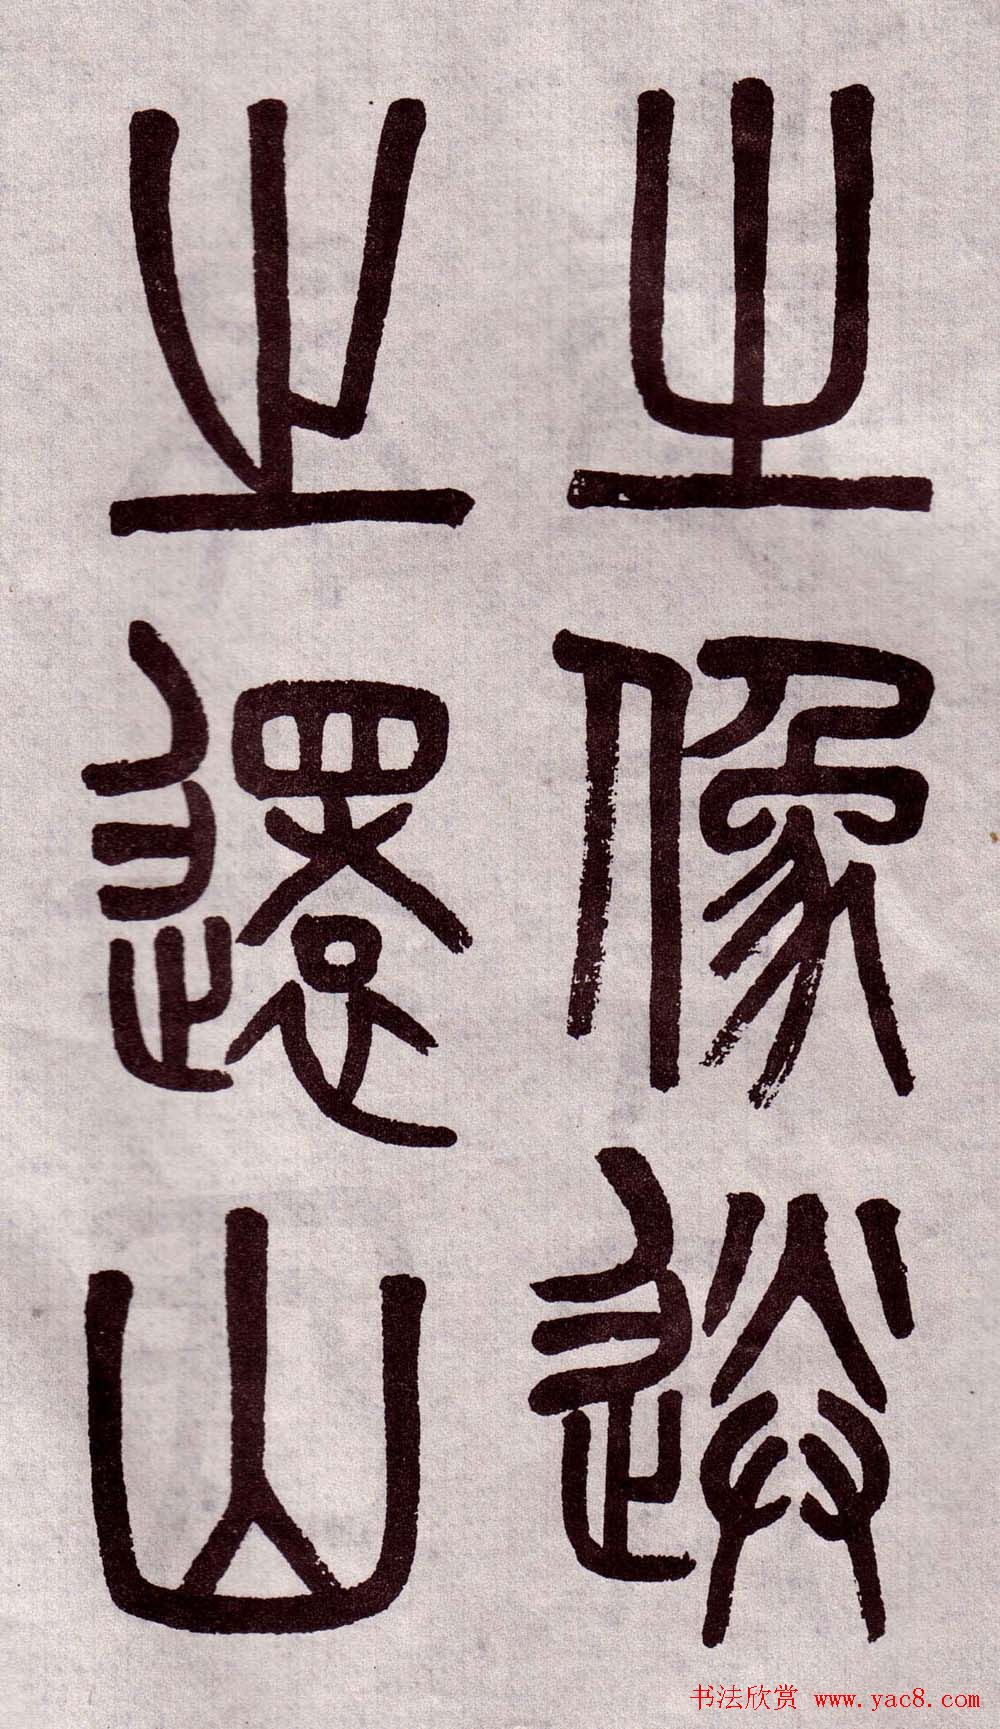 之像送
之還山
书法欣赏 www.yac8.com